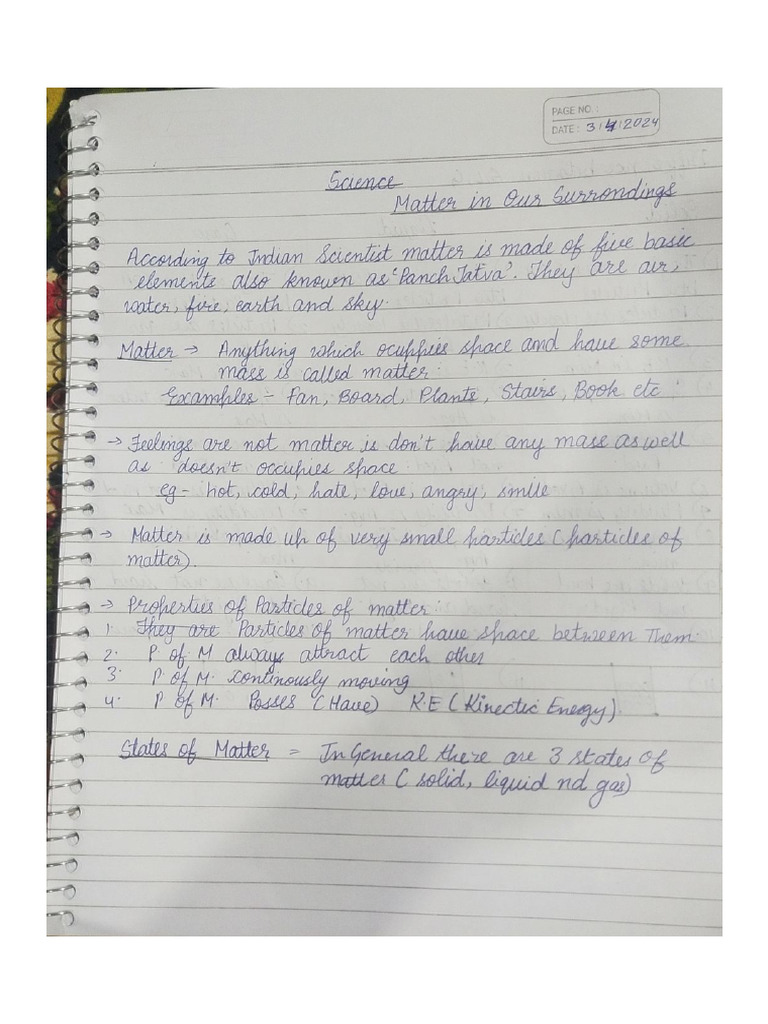 PAGE NO. :
DATE : 3/4/2024
Science
Matter in Our Surrondings
According to Indian Scientist matter is made of five basic
elements also known as 'Panch Tatva'. They are air,
water, fire, earth and sky.
Matter → Anything which ocuppies space and have some
mass is called matter.
Examples - Fan, Board, Plants, Stairs, Book etc
→ Feelings are not matter is don't have any mass as well
as doesn't occupies space
eg - hot, cold, hate, love, angry, smile
→ Matter is made up of very small particles (particles of
matter).
→ Properties of Particles of matter:
1. They are Particles of matter have space between Them.
2. P. of M always attract each other
3. P. of M. continously moving
4. P of M. Posses (Have) K.E (Kinectic Energy).
States of Matter = In General there are 3 states of
matter (solid, liquid nd gas)